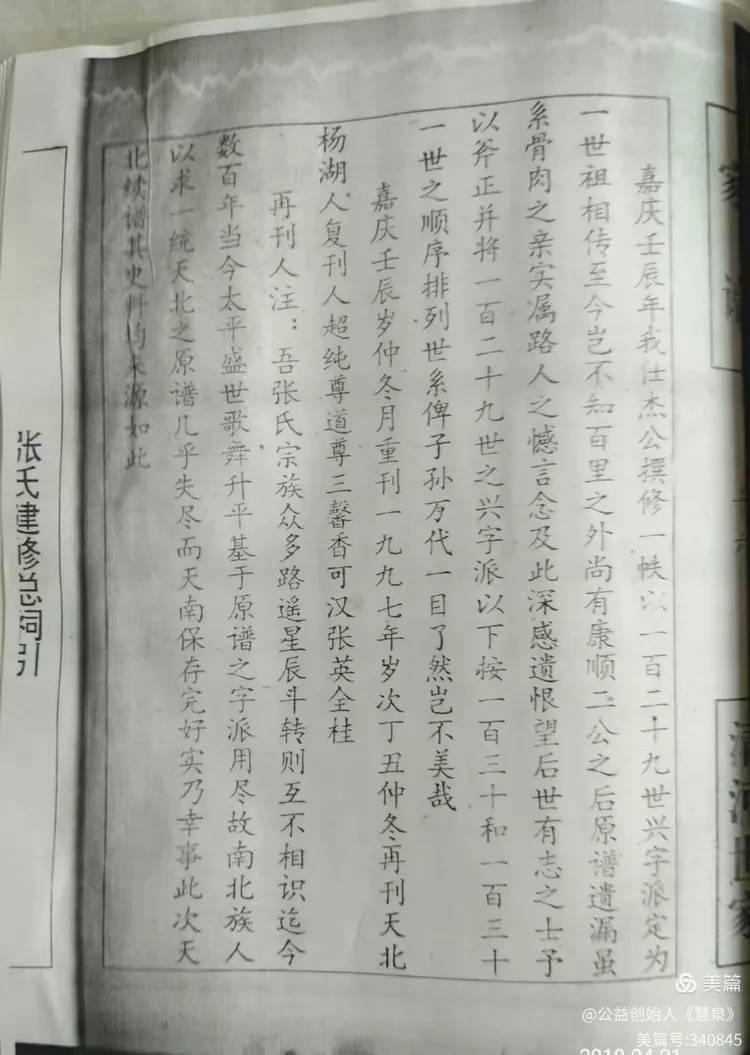 嘉庆壬辰年我仕杰公撰修一帙以一百二十九世兴字派定为
一世祖相传至今岂不知百里之外尚有康顺二公之后原谱遗漏虽
系骨肉之亲实属路人之憾言念及此深感遗恨望后世有志之士予
以斧正并将一百二十九世之兴字派以下按一百三十和一百三十
一世之顺序排列世系俾子孙万代一目了然岂不美哉
嘉庆壬辰岁仲冬月重刊一九九七年岁次丁丑仲冬再刊天北
杨湖人复刊人超纯尊道尊三馨香可汉张英全桂
再刊人注：吾张氏宗族众多路遥星辰斗转则互不相识迄今
数百年当今太平盛世歌舞升平基于原谱之字派用尽故南北族人
以求一统天北之原谱几乎失尽而天南保存完好实乃幸事此次天
北续谱其史料均来源如此
张氏建修总祠引
清河世家
美篇
@公益创始人《慧泉》
美篇号:340845